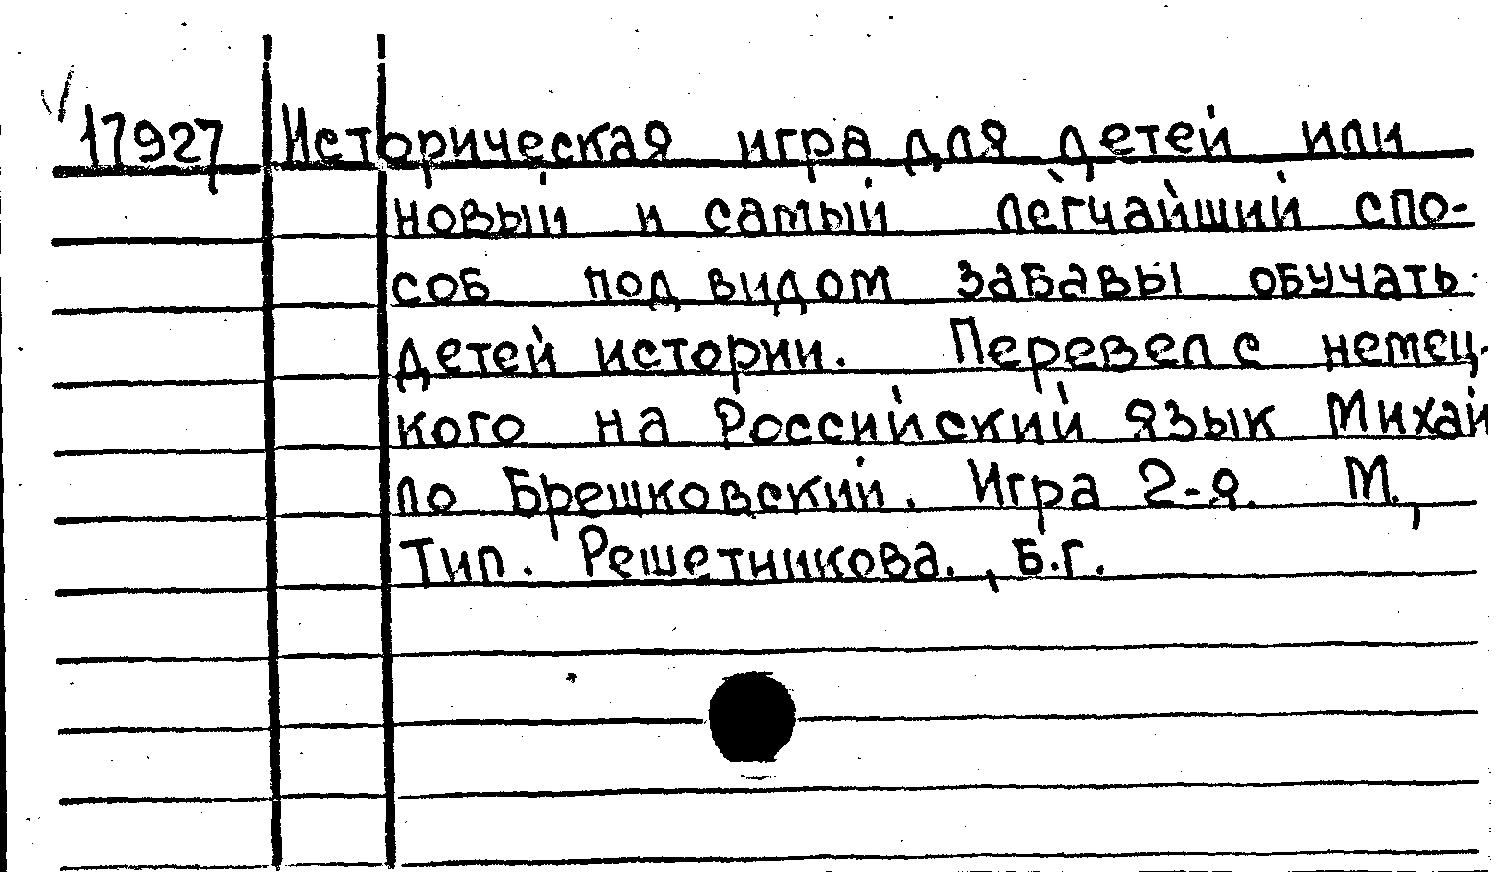 17927 Историческая игра для детей или
новый и самый легчайший спо-
соб под видом забавы обучать
детей истории. Перевел с немец-
кого на Российский язык Михай
ло Брешковский. Игра 2-я. М.,
Тип. Решетникова., Б.г.